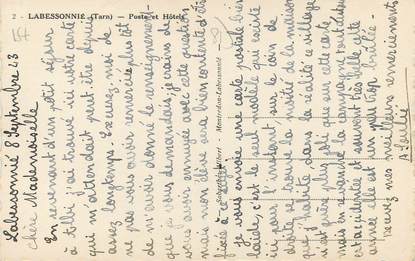 2 - LABESSONNIÉ (Tarn) - Poste et Hôtel
Labessonnié 8 Septembre 23
chère Mademoiselle
En revenant d'un petit séjour
à Albi j'ai trouvé ici votre carte
qui m'attendait peut être depuis
assez longtemps. Excusez-moi de
ne pas vous avoir remerciée plus tôt
de m'avoir donné le renseignement
que je vous demandais, je crains de
vous avoir ennuyée avec cette question
mais mon élève sera bien contente d'être
fixée à ce sujet.
Je vous envoie une carte postale bien
laide, c'est le seul modèle qui existe
ici pour l'instant, sur le coin de
droite se trouve la moitié de la maison
que j'habite dans la réalité ce village
n'est guère plus joli que sur la carte
mais en revanche la campagne tout autour
est accidentée et souvent très belle cette
année elle est un peu trop brûlée
recevez mes meilleurs remerciements